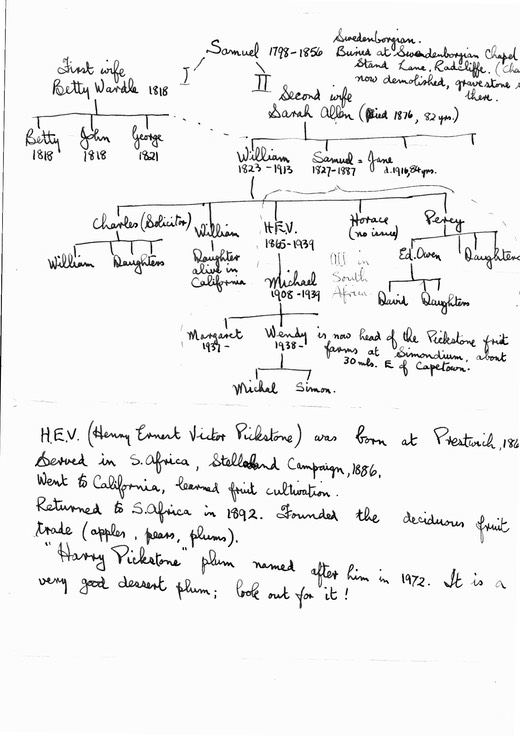 Samuel 1798-1856
Swedenborgian.
Buried at Swedenborgian Chapel
Stand Lane, Radcliffe.
now demolished, gravestone
there.
I
II
First wife
Betty Wardle 1818
Second wife
Sarah Allen (Died 1876, 82 yrs.)
Betty
1818
John
1818
George
1821
William
1823-1913
Samuel = Jane
1827-1887 d.1916, 84yrs.
Charles (Solicitor)
William
H.E.V.
1865-1939
Horace
(no issue)
Percy
William Daughters
Daughter
alive in
California
Michael
1908-1939
All in
South
Africa
Ed. Owen
Daughters
David Daughters
Margaret
1937-
Wendy is now head of the Pickstone fruit
1938- farms at Simondium, about
30 mls. E of Capetown.
Michal Simon.
H.E.V. (Henry Ernest Victor Pickstone) was born at Prestwich, 186
Served in S. Africa, Stellaland Campaign, 1886,
Went to California, learned fruit cultivation.
Returned to S. Africa in 1892. Founded the deciduous fruit
trade (apples, pears, plums).
"Harry Pickstone" plum named after him in 1972. It is a
very good dessert plum; look out for it!